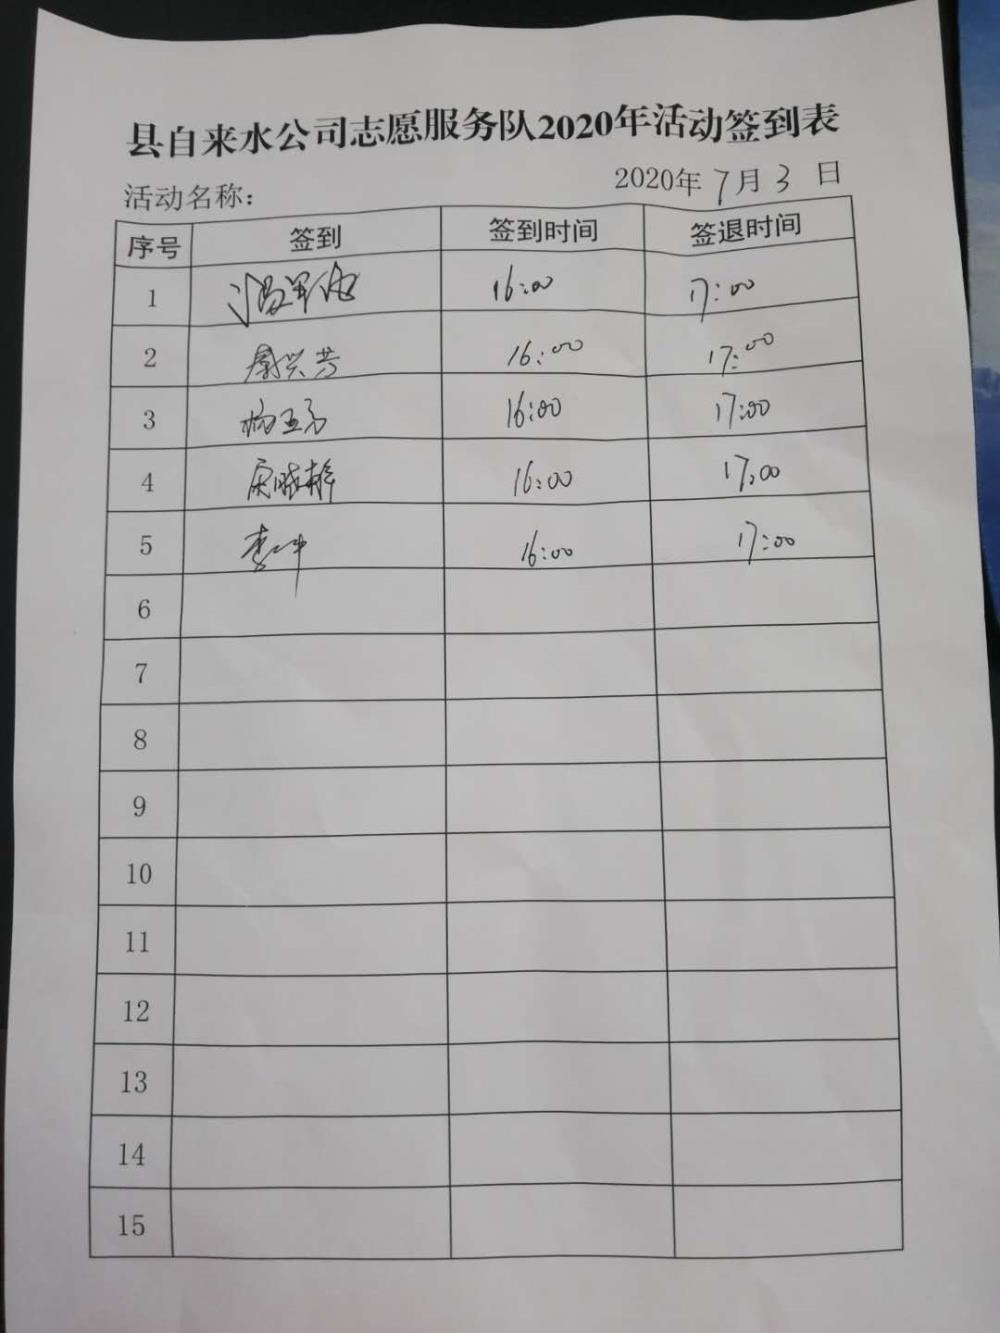 县自来水公司志愿服务队2020年活动签到表
活动名称: 2020年7月3日
序号 签到 签到时间 签退时间
1 16:00 17:00
2 秦兴芳 16:00 17:00
3 杨玉言 16:00 17:00
4 16:00 17:00
5 李一冲 16:00 17:00
6
7
8
9
10
11
12
13
14
15